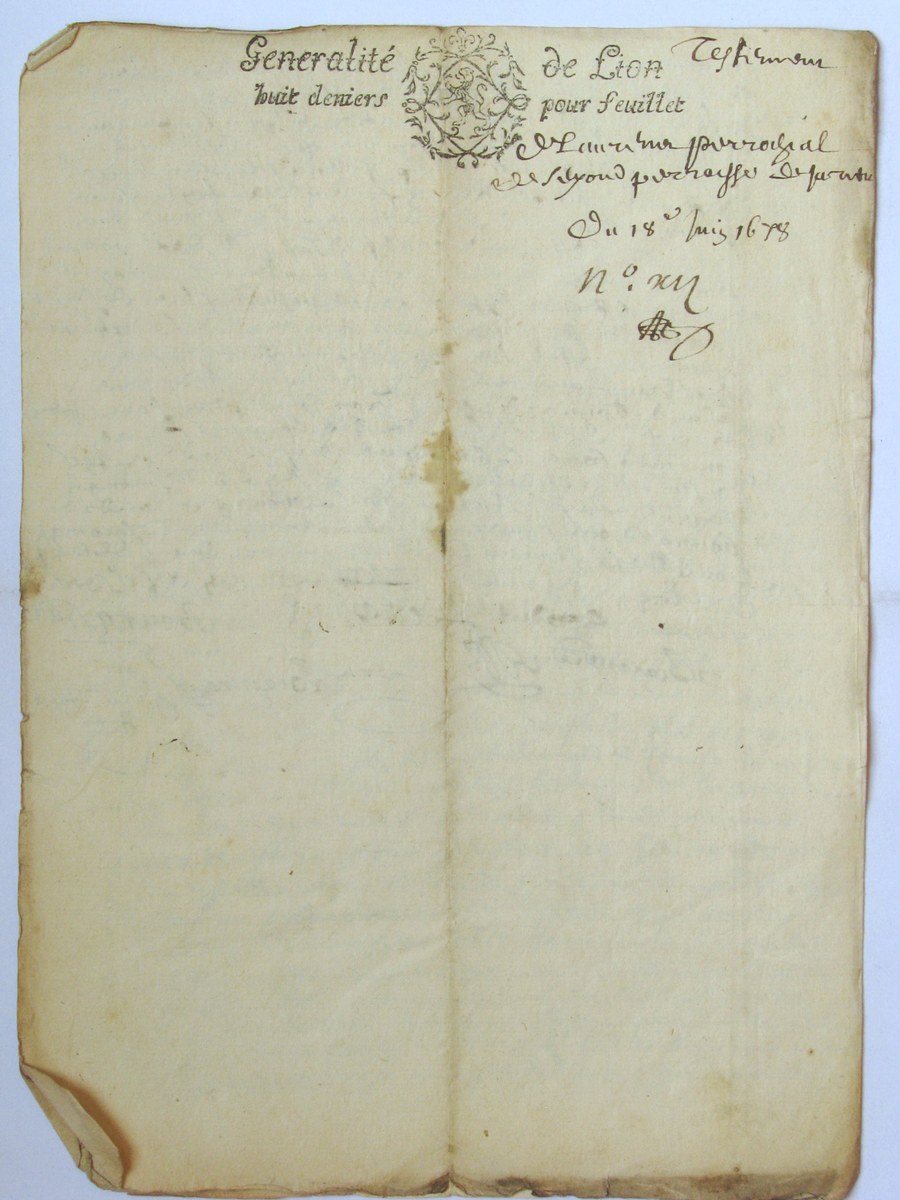 Generalité de Lion
huit deniers pour feuillet
Testement
de Laurence perrochial
de perroisse de
Du 18e Juin 1678
No. xii